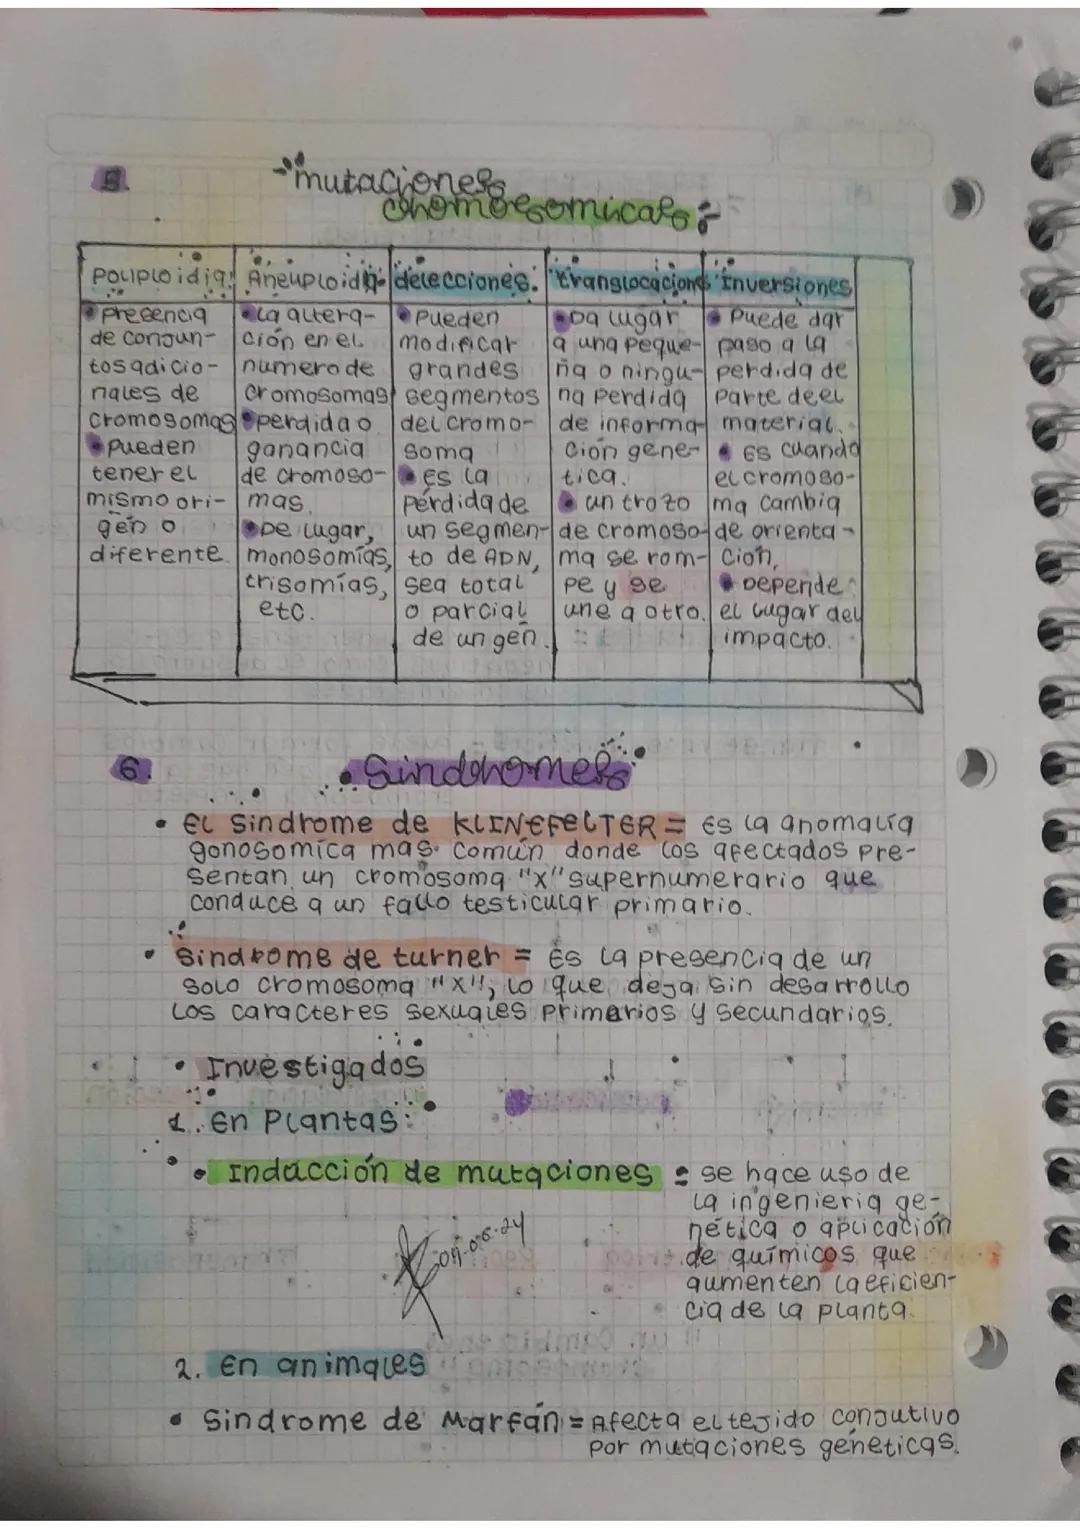 5.
mutaciones
chomosomicas :
Poliploidia:
Presencia
de conjun-
tos adicio-
nales de
cromosomas
Pueden
tener el
mismo ori-
gen o
diferente.
Aneuploidia:
La altera-
ción en el
numero de
cromosomas
perdida o
ganancia
de cromoso-
mas.
De lugar,
monosomías,
trisomías,
etc.
delecciones:
Pueden
modificar
grandes
segmentos
del cromo-
soma
es la
pérdida de
un segmen-
to de ADN,
sea total
o parcial
de un gen.
translocacions
Da lugar
a una peque-
ña o ningu-
na perdida
de informa-
ción gene-
tica.
un trozo
de cromoso-
ma se rom-
pe y se
une a otro.
Inversiones
Puede dar
paso a la
perdida de
parte de el
material.
es cuando
el cromoso-
ma cambia
de orienta-
cion,
Depende
el lugar del
impacto.
6.
Sindromes
• El sindrome de KLINEFELTER = Es la anomalia
gonosomica mas común donde los afectados pre-
sentan un cromosoma "X" supernumerario que
conduce a un fallo testicular primario.
• Sindrome de turner = Es la presencia de un
solo cromosoma "X", lo que deja sin desarrollo
los caracteres sexuales primarios y secundarios.
• Investigados
1. En Plantas:
• Inducción de mutaciones : se hace uso de
la ingenieria ge-
nética o aplicación
de químicos que
aumenten la eficien-
cia de la planta.
2. En animales
• Sindrome de Marfán = Afecta el tejido conjutivo
por mutaciones geneticas.